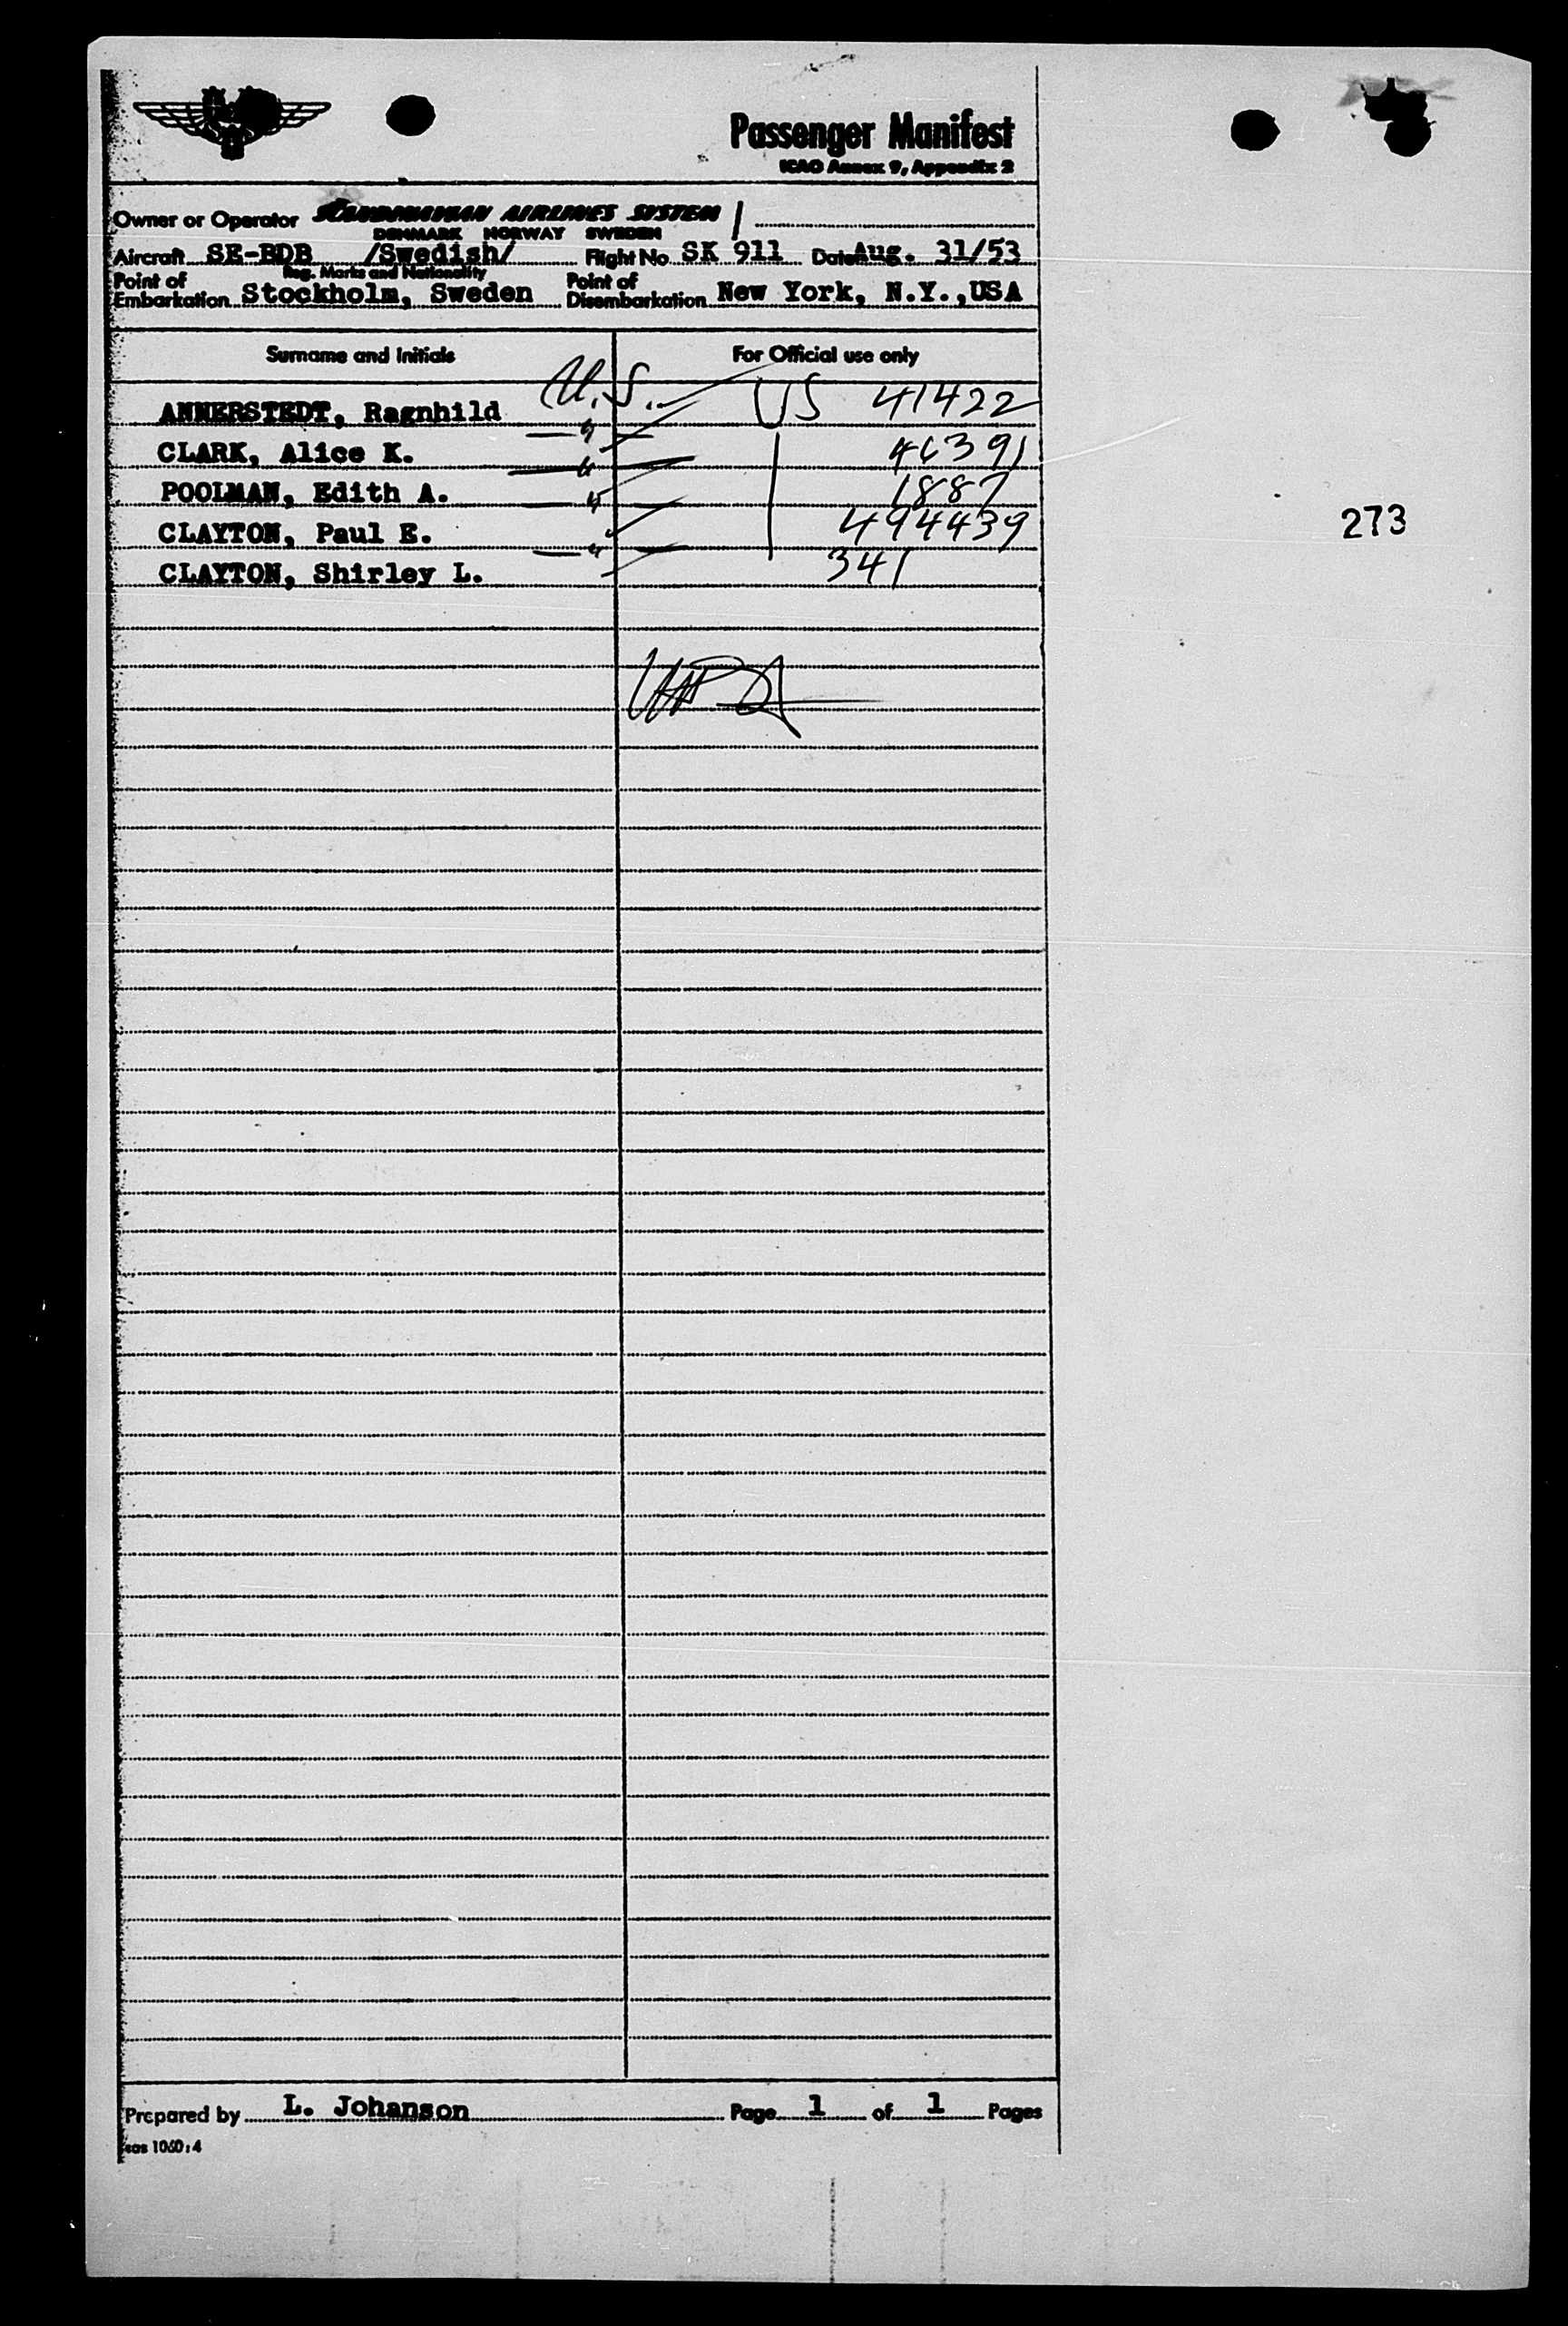 Passenger Manifest
ICAO Annex 9, Appendix 2
Owner or Operator SCANDINAVIAN AIRLINES SYSTEM
DENMARK NORWAY SWEDEN
Aircraft SE-BDB /Swedish/ Flight No SK 911 Date Aug. 31/53
Reg. Marks and Nationality
Point of Embarkation Stockholm, Sweden Point of Disembarkation New York, N.Y.,USA
Surname and Initials For Official use only
ANNERSTEDT, Ragnhild U.S. US 41422
CLARK, Alice K. " 46391
POOLMAN, Edith A. " 1887
CLAYTON, Paul E. " 494439
CLAYTON, Shirley L. " 341
273
Prepared by L. Johanson Page 1 of 1 Pages
sas 1060:4